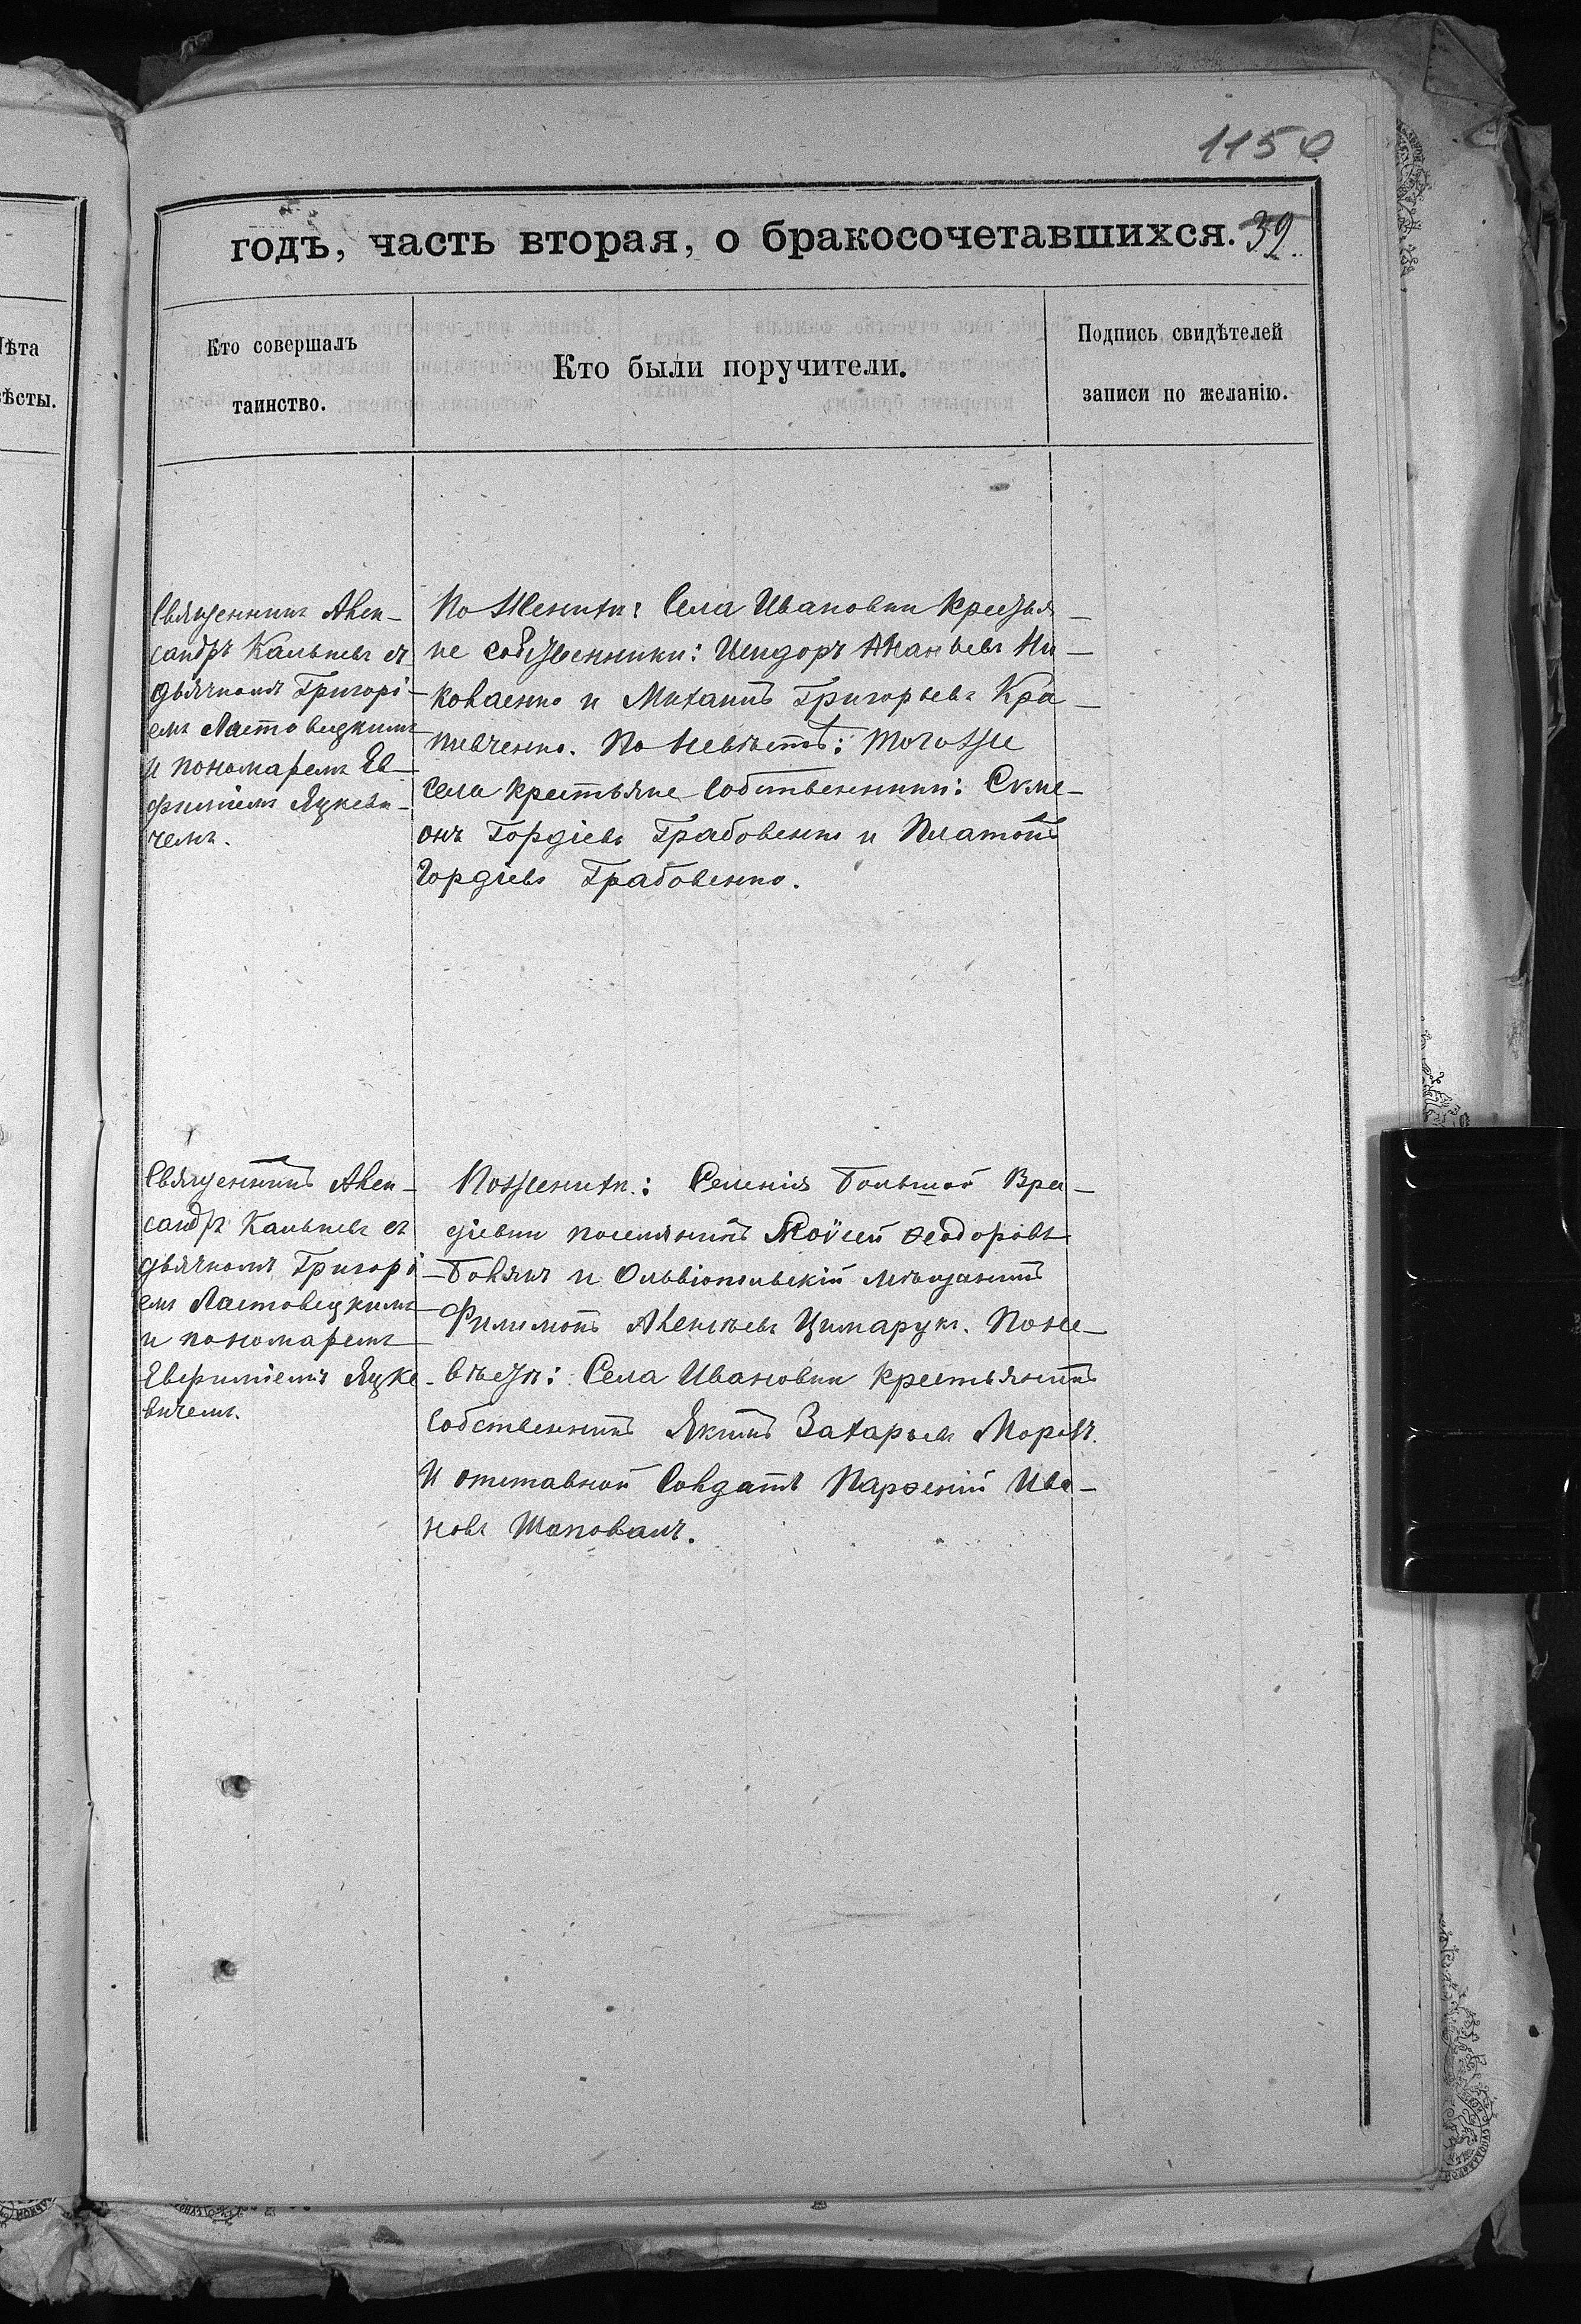 1150
годъ, часть вторая, о бракосочетавшихся. 39.
Лѣта
вѣсты.
Кто совершалъ
таинство.
Кто были поручители.
Подпись свидѣтелей
записи по желанію.
Священникъ Алек-
сандръ Кальневъ съ
дьячкомъ Григорі-
емъ Ластовецкимъ
и пономаремъ Ев-
фиміемъ Яцкеви-
чемъ.
По Женихѣ: Села Ивановки крестья-
не собственники: Исидоръ Ананьевъ Ни-
коваенко и Михаилъ Григорьевъ Кра-
пивченко. По Невѣстѣ: тогоже
села крестьяне собственники: Симе-
онъ Гордіевъ Грабовенко и Платонъ
Гордіевъ Грабовенко.
Священникъ Алек-
сандръ Кальневъ съ
дьячкомъ Григорі
емъ Ластовецкимъ
и пономаремъ
Евфиміемъ Яцке-
вичемъ.
По женихѣ: Селенія Большой Вра-
діевки поселянинъ Моѵсей Ѳеодоровъ
и Ольвіопольскій мѣщанинъ
Филимонъ Алексѣевъ Цимарукъ. По не-
вѣстѣ: Села Ивановки крестьянинъ
собственникъ Якимъ Захарьевъ
И отставной Солдатъ Парѳеній Ива-
новъ Шаповалъ.